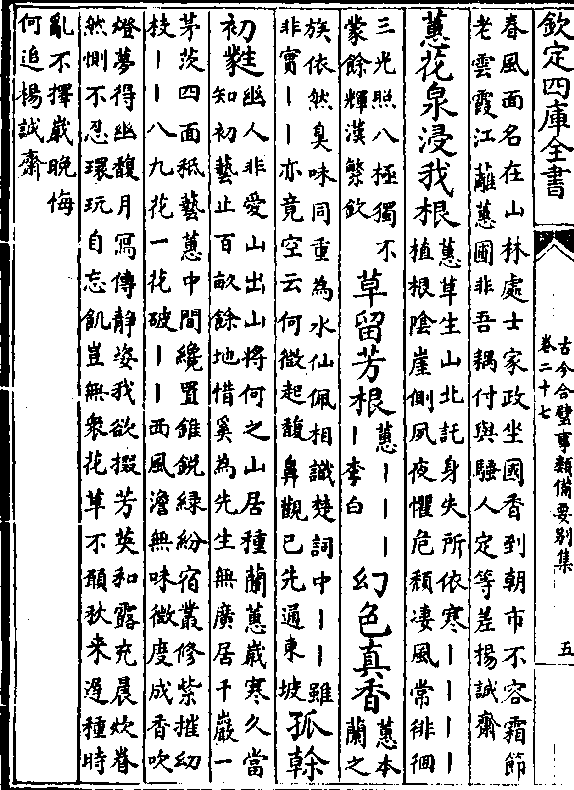 欽定四庫全書
古今合璧事類備要别集
卷二十七
五
春風面名在山林處士家政坐國香到朝市不容霜節
老雲霞江蘺蕙圃非吾耦付與騷人定等差楊誠齋
蕙花泉浸我根
蕙草生山北託身失所依寒丨丨丨丨
植根陰崖側夙夜懼危頹凄風常徘徊
三光照八極獨不
蒙餘輝漢繁欽
草留芳根
蕙丨丨丨
丨李白
幻色真香
蕙本
蘭之
族依然臭味同重為水仙佩相識楚詞中丨丨雖
非實丨丨亦竟空云何微起馥鼻觀已先通東坡
孤幹
初蕤
幽人非愛山出山將何之山居種蘭蕙歲寒久當
知初藝止百畝餘地惜奚為先生無廣居千巖一
茅茨四面秪藝蕙中間纔置錐鋭緑紛宿叢修紫擢幼
枝丨丨八九花一花破丨丨西風澹無味微度成香吹
燈夢得幽馥月寫傳静姿我欲掇芳英和露充晨炊眷
然惻不忍環玩自忘飢豈無衆花草不願秋来遲種時
亂不擇歲晚悔
何追楊誠齋